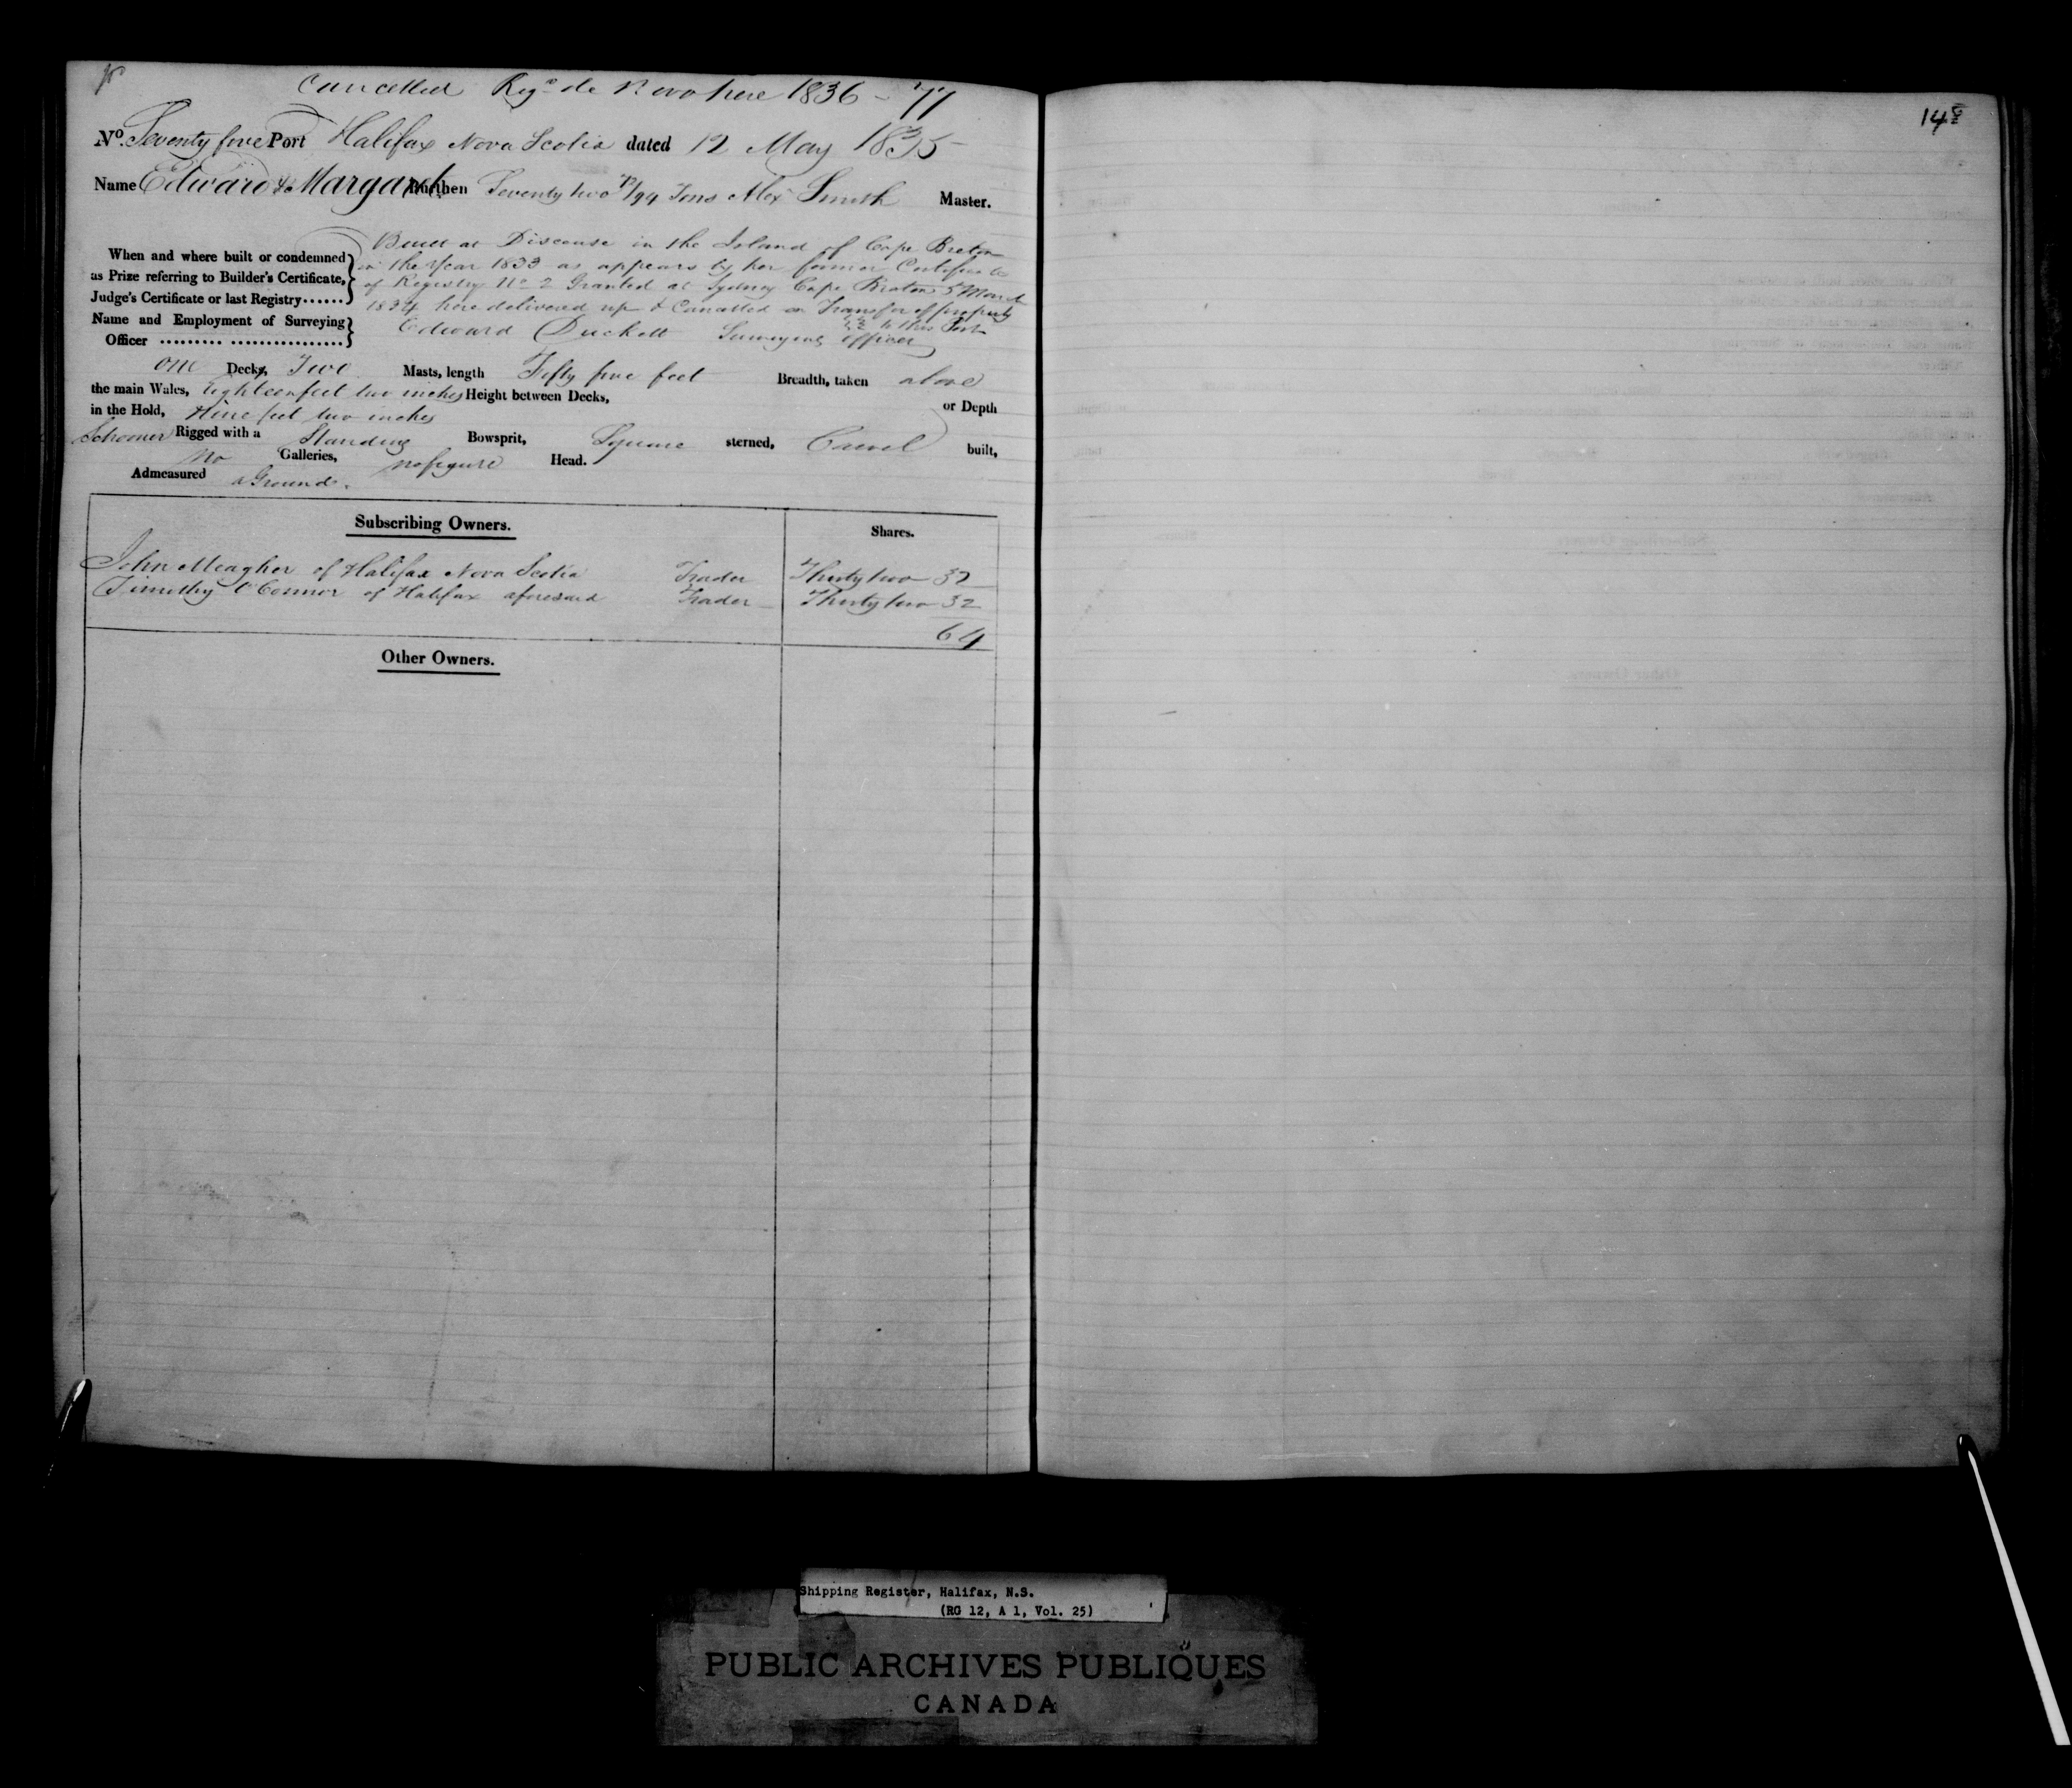 Cancelled Regd de Novo here 1836 - 77
No. Seventy five Port Halifax Nova Scotia dated 12 May 1835
Name Edward & Margaret Burthen Seventy two 72/94 Tons Alexr Smith Master.
When and where built or condemned as Prize referring to Builder's Certificate, Judge's Certificate or last Registry......
Built at Discouse in the Island of Cape Breton
in the Year 1833 as appears by her former Certificate
of Registry No 2 Granted at Sydney Cape Breton 5 March
1834 here delivered up & Cancelled on Transfer of property
to this Port
Name and Employment of Surveying Officer ......... ................
Edward Duckett Surveying officer
One Decks, Two Masts, length Fifty five feet Breadth, taken above
the main Wales, Eighteen feet two inches Height between Decks, or Depth
in the Hold, Nine feet two inches
Schooner Rigged with a Standing Bowsprit, Square sterned, Carvel built,
No Galleries, no figure Head.
Admeasured aGround.
Subscribing Owners. Shares.
John Meagher of Halifax Nova Scotia Trader Thirty two 32
Timothy O'Connor of Halifax aforesaid Trader Thirty two 32
64
Other Owners.
148
Shipping Register, Halifax, N.S.
(RG 12, A 1, Vol. 25)
PUBLIC ARCHIVES PUBLIQUES
CANADA